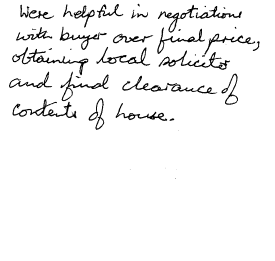 Were helpful in negotiations
with buyer over final price,
obtaining local solicitor
and final clearance of
contents of house.